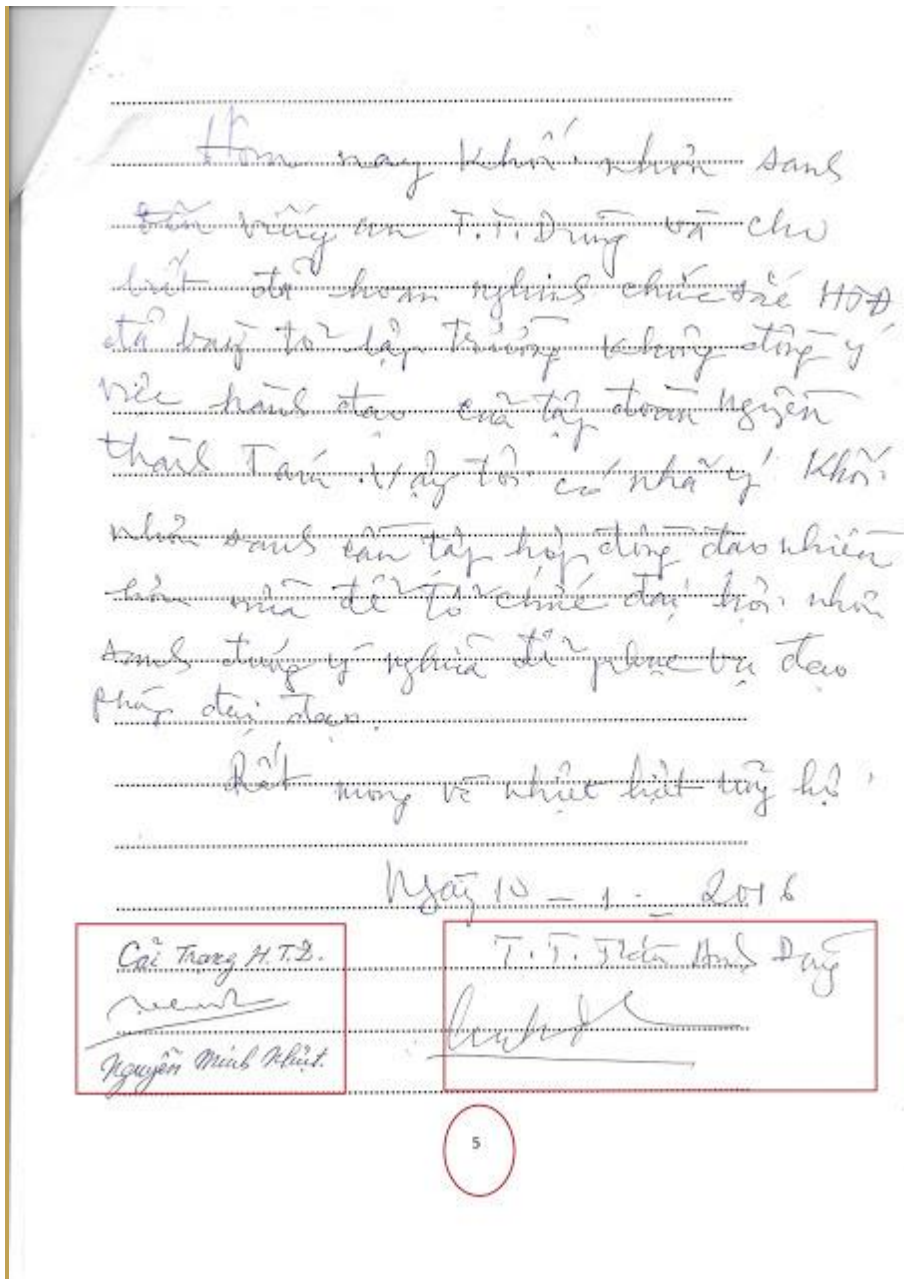 Hôm nay Khối nhơn sanh
đến viếng an T.T. Dũng và cho
biết đã hoan nghinh chức sắc HTĐ
đã bài tỏ lập trường không đồng ý
việc hành đạo của tập đoàn Nguyễn
thành Tám. Vậy tôi có nhã ý Khối
nhơn sanh cần tập hợp đồng đạo nhiều
hơn nữa để tổ chức đại hội nhơn
sanh đúng ý nghĩa để phục vụ đạo
pháp đại đạo.
Rất mong về nhiệt liệt ủng hộ
Ngày 10 - 1 - 2016
Cải Trạng H.T.Đ.
Nguyễn Minh Nhựt.
T.T. Trần Anh Dũng
5